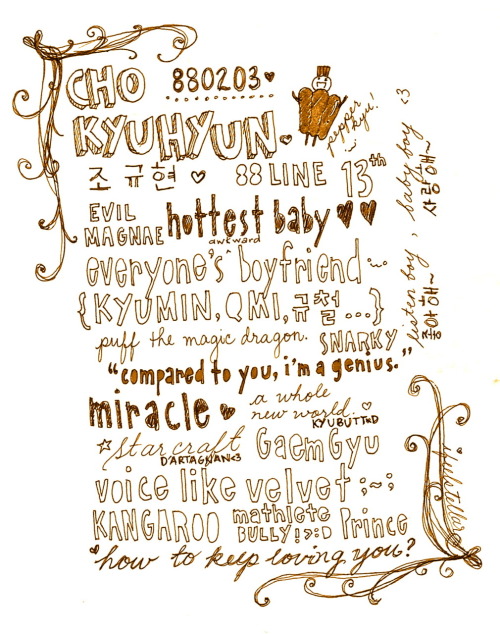 CHO 880203
KYUHYUN
pepper kyu!
조규현 88 LINE 13th
EVIL MAGNAE hottest baby
everyone's awkward boyfriend
{KYUMIN, QMI, 규철 ...}
puff the magic dragon. SNARKY
"compared to you, i'm a genius."
miracle a whole new world.
KYUBUTT
starcraft GaemGyu
D'ARTAGNAN<3
voice like velvet ;~;
KANGAROO mathlete BULLY!>:D Prince
how to keep loving you?
listen boy, baby boy <3
좋아해~ 사랑해~